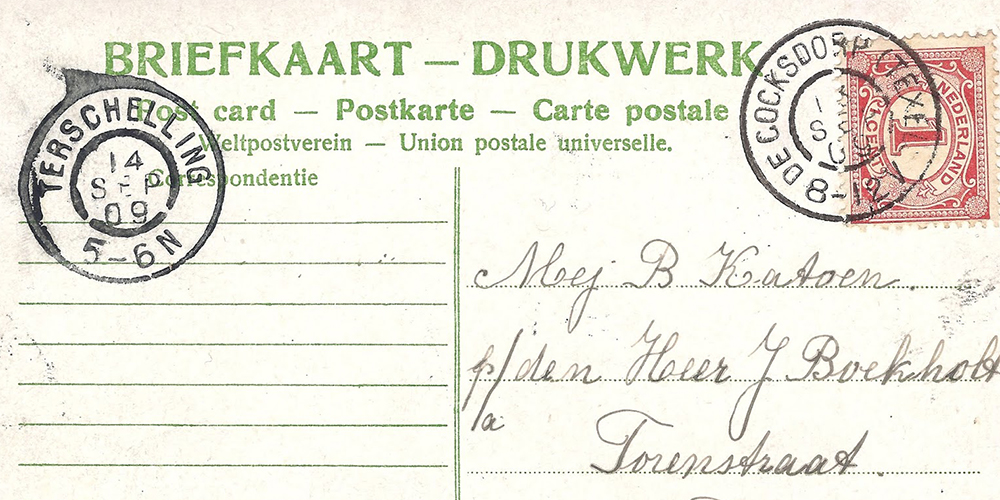 BRIEFKAART — DRUKWERK
Post card — Postkarte — Carte postale
Weltpostverein — Union postale universelle.
Correspondentie
TERSCHELLING
14
SEP
09
5-6N
DE COCKSDORP (TEXEL)
8-12
NEDERLAND
1
CENT
Mej B Katoen.
p/a den Heer J Boekholt
Torenstraat.